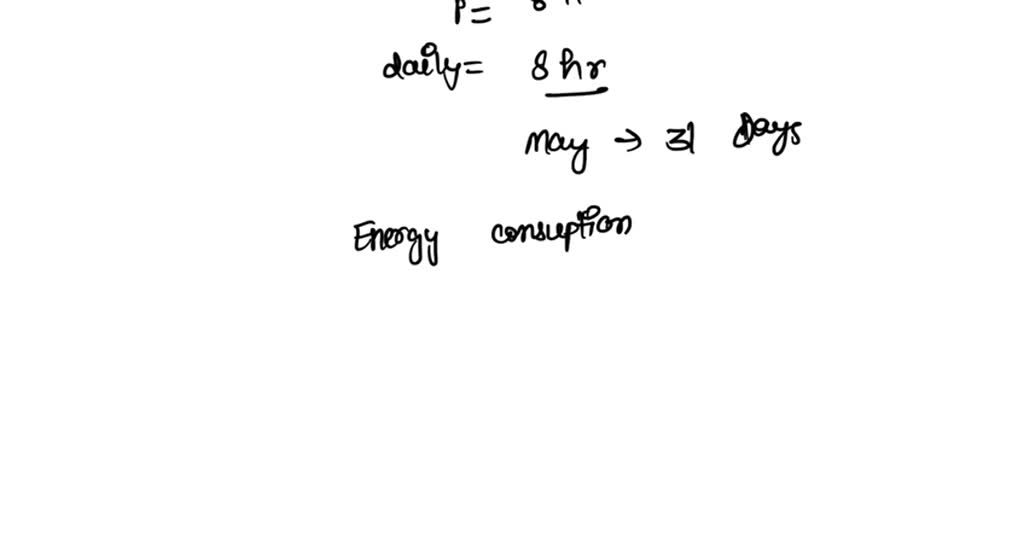 P=
daily= 8 hr
May → 31 Days
Energy consuption